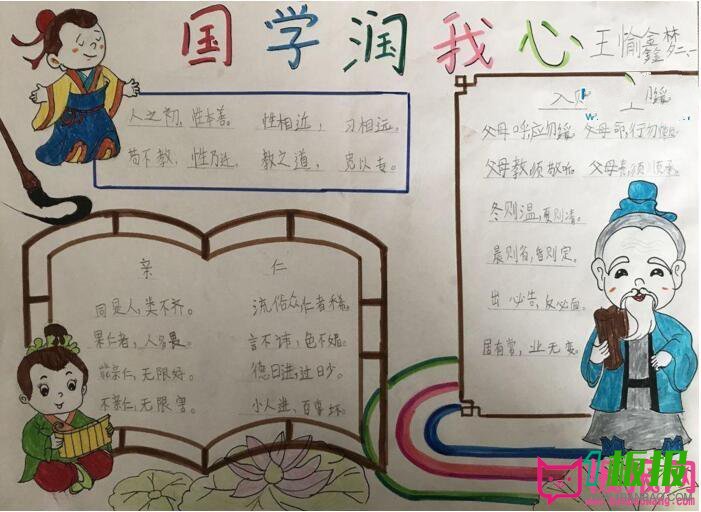 国学润我心 王愉鑫梦
人之初,性本善。 性相近, 习相远。
苟不教,性乃迁, 教之道, 贵以专。
入则
父母呼,应勿缓 父母命,行勿懒
父母教,须敬听 父母责,须顺承
冬则温,夏则凊。
晨则省,昏则定。
出必告,反必面。
居有常,业无变。
亲 仁
同是人,类不齐。 流俗众,仁者稀。
果仁者,人多畏。 言不讳,色不媚。
能亲仁,无限好。 德日进,过日少。
不亲仁,无限害。 小人进,百事坏。
板报